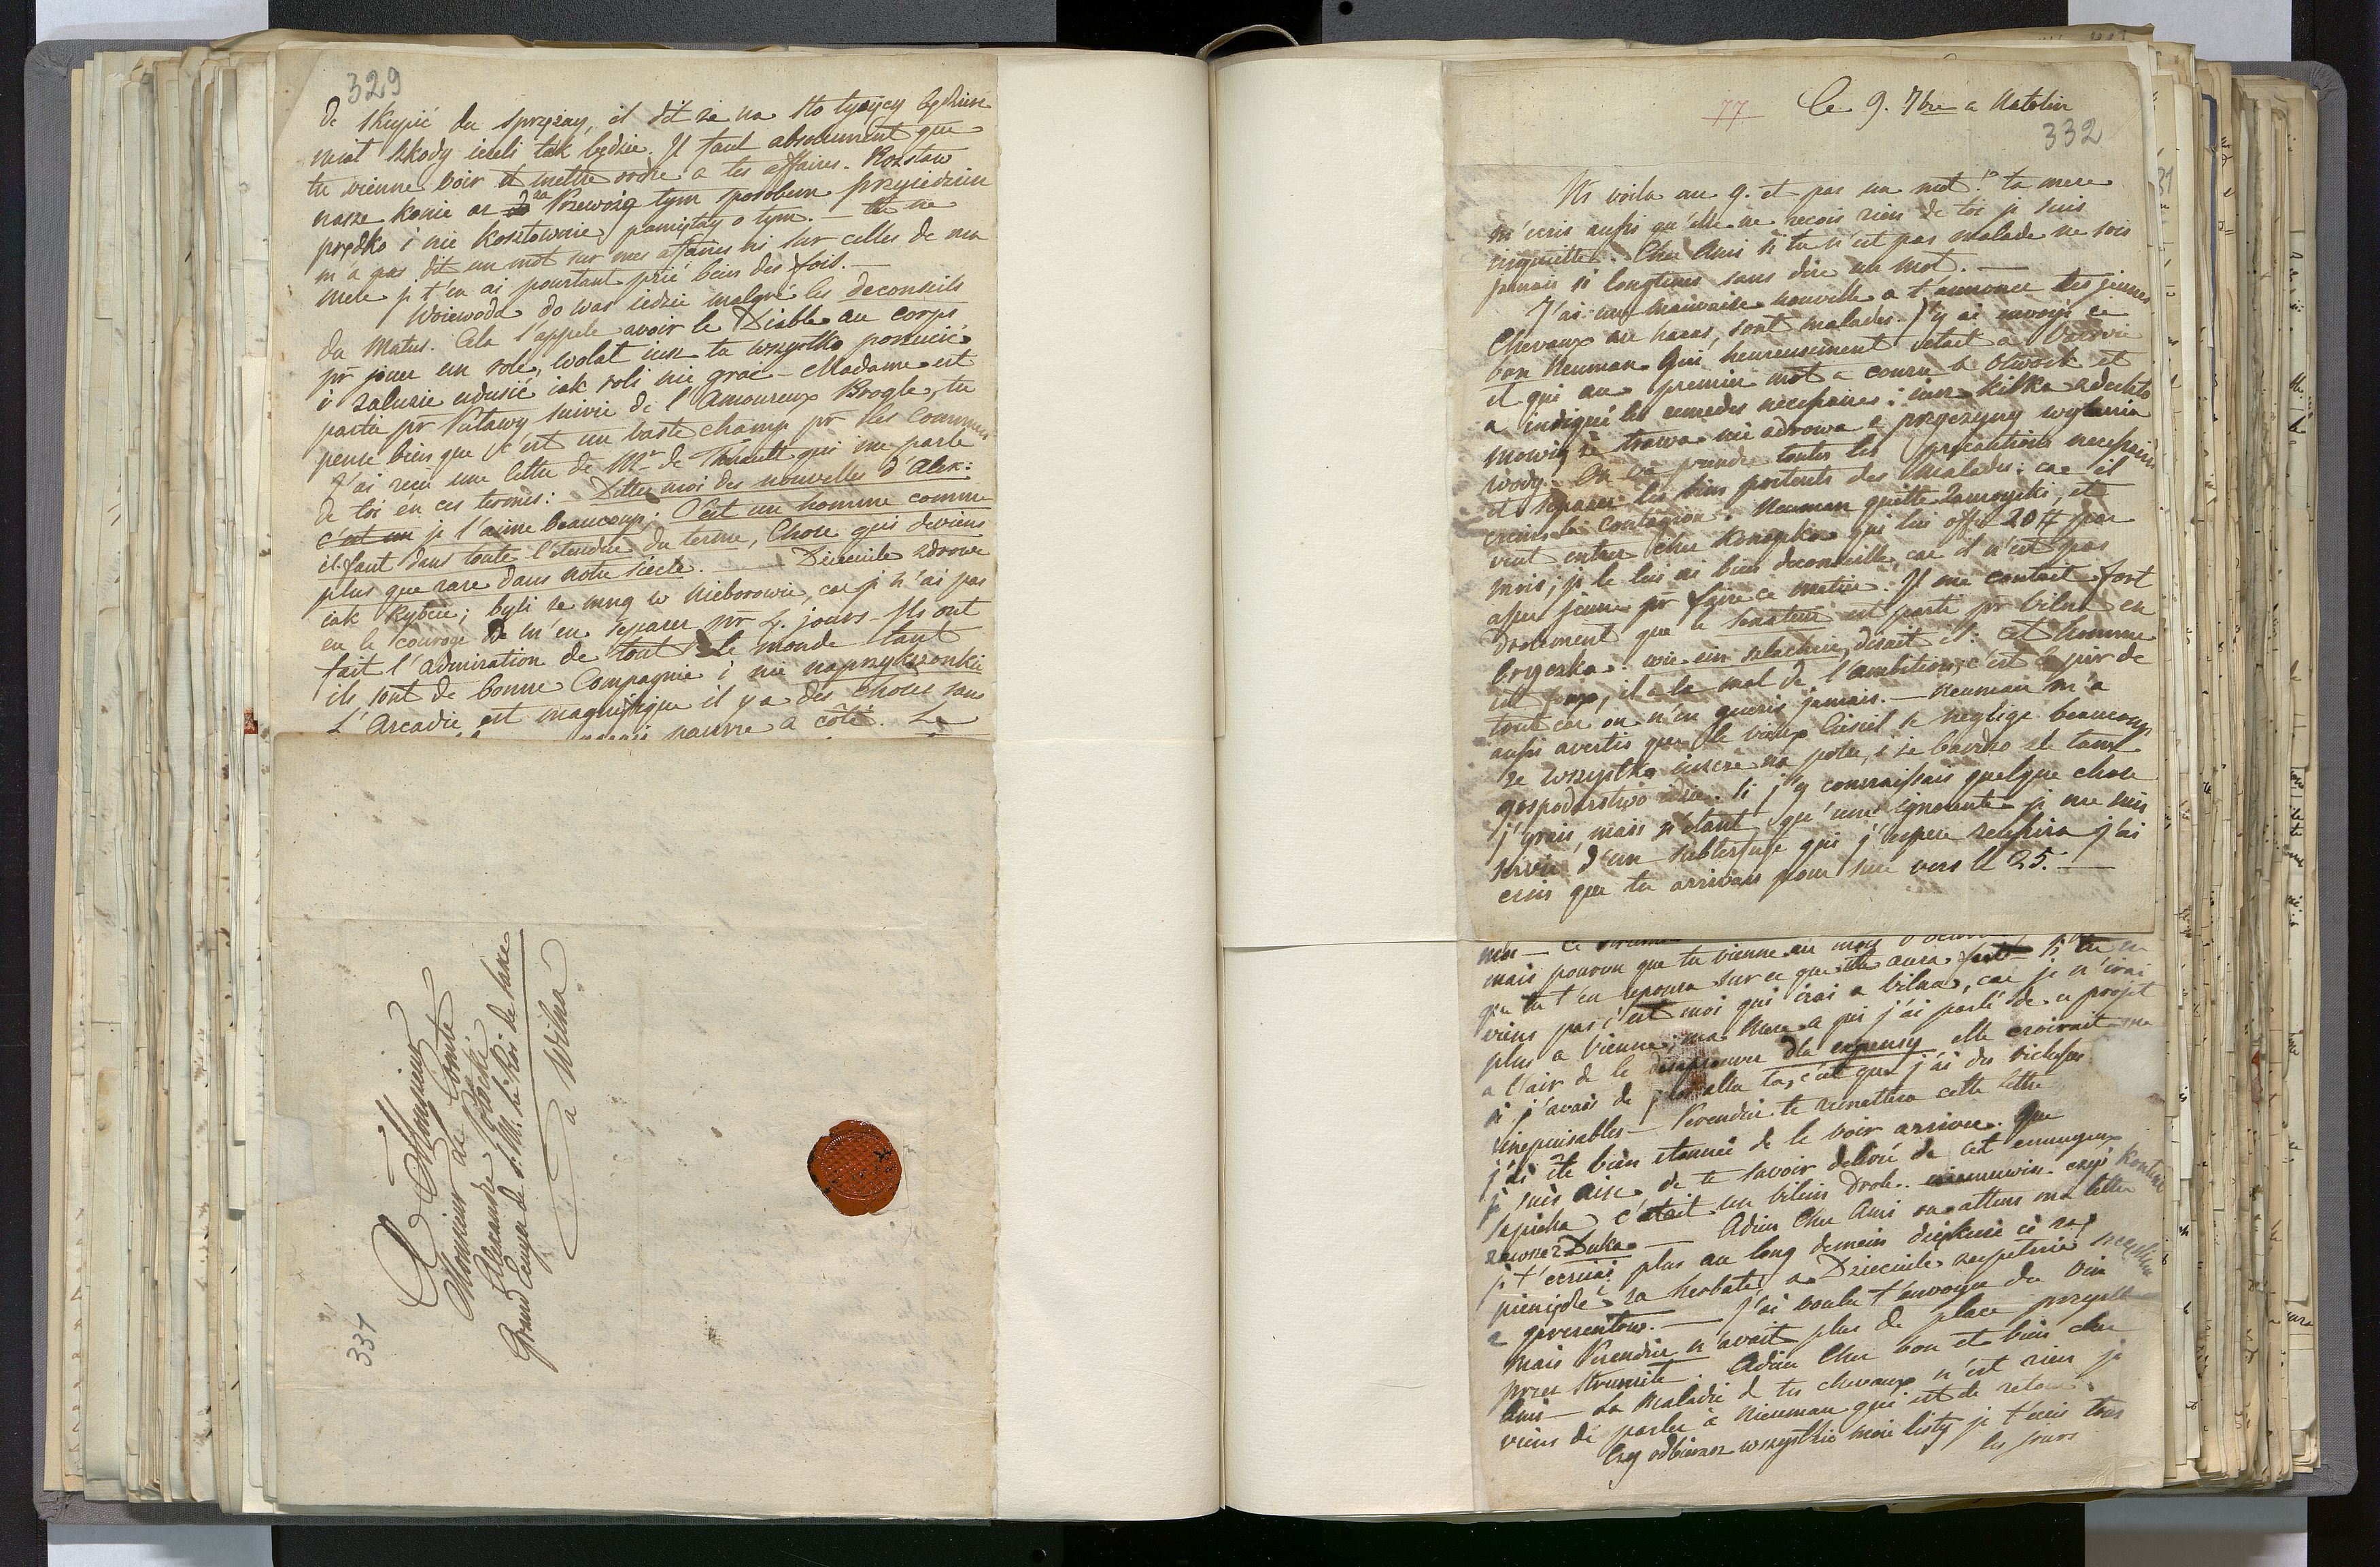 329
de skupić du sprzężay, il dit że na sto tysięcy będziesz
miał szkody ieżeli tak będzie. Il faut absolument que
tu vienne voir et mettre ordre a tes affaires. Rozstaw
nasze konie az za Przewożą tym sposobem przyiedziem
prędko i nie kosztownie, pamiętay o tym. — tu ne
m'a pas dit un mot sur mes affaires ni sur celles de ma
mere je t'en ai pourtant prié bien des fois. —
Woiewoda do was iedzie malgré les deconseils
du Matus. Cela s'appele avoir le Diable au corps
pr jouer un role, wolał iusz tu wszystko porzucić
i zaluzie udusić iak roli nie grać — Madame est
partie pr Pulawy suivie de l'Amoureux Brogle, tu
pense bien que c'est un vaste champ pr les Commeres
J'ai reçu une lettre de Mr de Thuault qui me parle
de toi en ces termes: Dittes moi des nouvelles d'Alex:
c'est un je l'aime beaucoup: C'est un homme comme
il faut dans toute l'étendue du terme, Chose qui deviens
plus que rare dans notre siecle. — Dziecinki zdrowe
iak Rybcie; byli ze mną w Nieborowie, car je n'ai pas
eu le courage de m'en separer pr 4. jours — Ils ont
fait l'admiration de tout le monde tant
ils sont de bonne Compagnie i nie naprzykszonki
L'Arcadie est magnifique il y a des choses sans
pauvre a côté. La
A Monsieur
Monsieur le Comte
Alexandre Potocki
Grand Ecuyer de S: M: le Roi de Saxe
a Wilna
331
77
Le 9. 7bre a Natolin
332
Ns voila au 9. et pas un mot! ta mere
m'ecris aussi qu'elle ne recois rien de toi je suis
inquiette. Cher Ami si tu n'est pas malade ne sois
jamais si longtems sans dire un mot. —
J'ai une mauvaise nouvelle a t'annoncer tes jeunes
Chevaux au haras, sont malades. J'y ai envoyé ce
bon Neuman qui heureusement etait a Varsovie
et qui au premier mot a couru a Otwock et
a indiqué les remedes necessaires; iusz kilka zdechło
mowią że trawa nie zdrowa z przyczyny wylania
wody. On va prendre toutes les précautions necessaires
et separer les biens portents des Malades; car il
crains la contagion. Neuman quitte Zamoyski, et
veut entrer chez Konopka qui lui offre 20 # par
mois; je le lui ai bien deconseillé, car il n'est pas
assez jeune pr faire ce metier. Il me contait fort
drolement que le senateur est parti pr Vilna en
bryczka: wie ein szlachcic, disait il: cet homme
est fou, il a le mal de l'ambition, c'est le pire de
tout car on n'en gueris jamais. — Neuman m'a
aussi avertis que le vieux se neglige beaucoup
że wszystko iescze na polu, i że bardzo źle tam
gospodarstwo idzie. Si j'y connaissais quelque chose
j'irais, mais n'étant qu'une ignorante je me suis
servie d'un subterfuge qui j'espere reussira j'ai
ecris que tu arrivais pour sur vers le 25. —
mais pourvu que tu vienne au mois
que tu t'en repose sur ce que aura fait — si tu ne
viens pas c'est moi qui irai a Vilna, car je n'irai
plus a Vienne; ma Mere a qui j'ai parlé de ce projet
a l'air de le desaprouver dla expensy elle croirait
si j'avais de aller la, c'est que j'ai des richesses
inepuisables — Verendrie te remettra cette lettre
j'ai été bien etonnée de le voir arriver. Que
je suis aise de te savoir delivré de cet ennuyeux
Sapieha c'etait un vilain Drole. czyi kontusz
Duka — Adieu Cher Ami en attens ma lettre
je t'ecrirai plus au long demain dziękuię ci za
pieniądze i za herbatę, a Dziecinki
— J'ai voulu t'envoyer du vin
mais Verendrie n'avait plus de place
przez Strumiłł. Adieu Cher bon et bien cher
Ami — La Maladie de tes chevaux n'est rien je
viens de parler à Nieuman qui est de retour
Czy odbierasz wszystkie moie listy je t'ecris tous
les jours